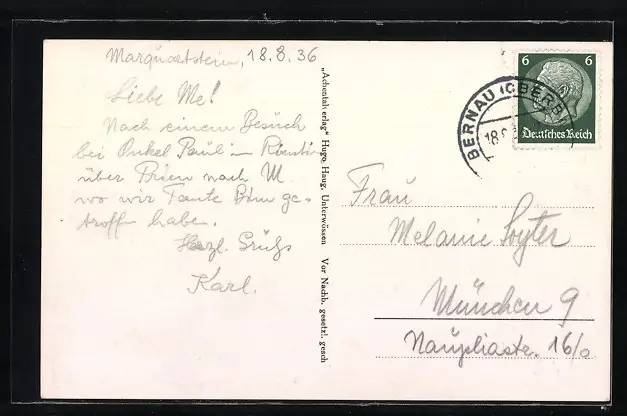 Marquartstein, 18.8.36
Liebe Me!
Nach einem Besuch
bei Onkel Paul in
über Prien nach M.
wo wir Tante ge-
troff haben.
Herzl. Grüße
Karl.
„Achentalverlag" Hugo Haug, Unterwössen Vor Nachb. gesetzl. gesch
6 6
Deutsches Reich
BERNAU (OBERB
18.
Frau
Melanie
München 9
16/0